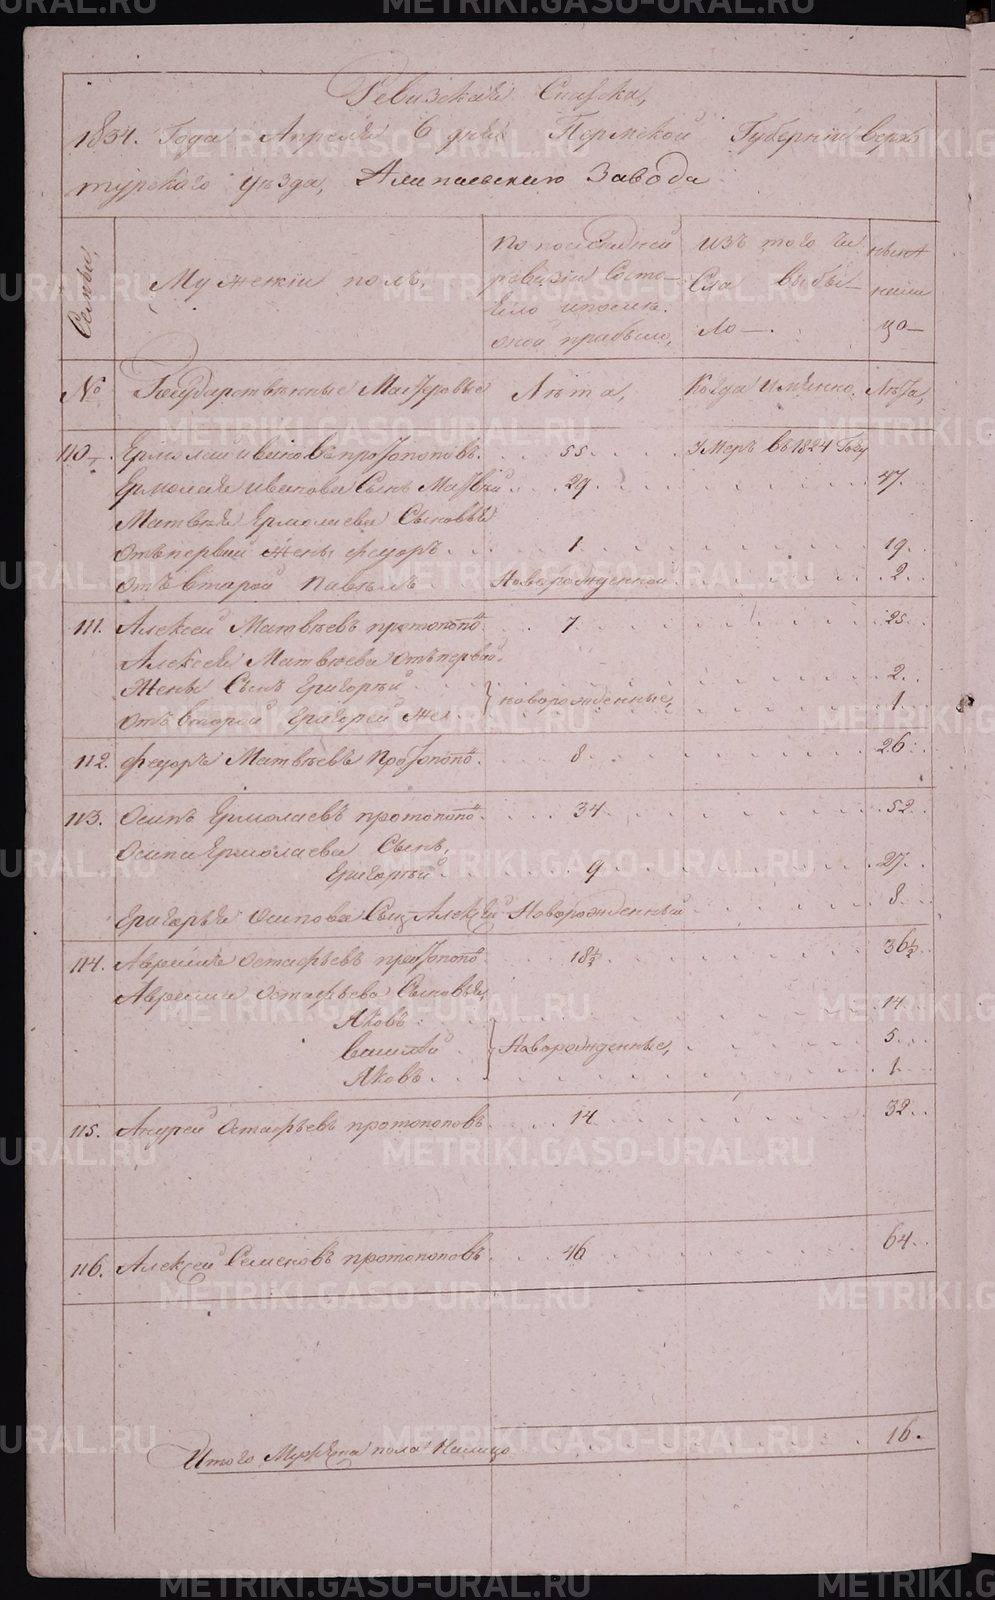 Ревизская Сказка,
1834. Года Апреля 6 дня Пермской Губернии верхо
турского уезда, Алапаевского Завода
Семьи,
Мужескій полъ,
По последней
ревизіи Состо—
яло и после
оной прибыло,
изъ того чи
сла выбы—
ло—.
ныне
нали
цо—
№
Государственные Мастеровые
Лѣта,
Когда имянно,
Лѣта,
110. Ермолай ивановъ протопоповъ. 55 Умеръ въ 1824 Году
Ермолая иванова Сынъ Матвей 29 47.
Матвея Ермолаева Сыновья
отъ первой жены федоръ 1 19.
отъ второй павелъ Новорожденной 2.
111. Алексей Матвеевъ протопопо 7 25.
Алексея Матвеева отъ первой
жены Сынъ григорій 2.
отъ второй григорей же новорожденные, 1
112. федоръ Матвеевъ протопопо 8 26.
113. Осипъ Ермолаевъ протопопо 34 52.
Осипа Ермолаева Сынъ,
григорій 9 27.
григорья осипова Сынъ Алексей Новорожденный 8
114. Авраамъ остафьевъ протопопо 18½ 36½
Авраама остафьева Сыновья,
Яковъ 14
василий Новорожденные, 5
Яковъ 1
115. Андрей остафьевъ протопоповъ 14 32.
116. Алексей Семеновъ протопоповъ 46 64.
Итого Мужеска пола налицо 16.
METRIKI.GASO-URAL.RU